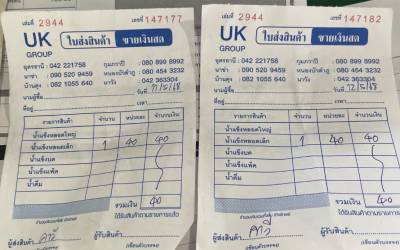 เล่มที่ 2944 เลขที่ 147177
UK
GROUP
ใบส่งสินค้า ขายเงินสด
อุดรธานี : 042 221758 กุมภวาปี : 080 899 8992
นาข่า : 090 520 9459 หนองบัวลำภู : 080 454 3232
บ้านดุง : 082 1055 640 นาวัง : 042 363304
วันที่ 11/5/68
นามผู้ซื้อ
ที่อยู่ เวลา
รายการสินค้า จำนวน หน่วยละ จำนวนเงิน
น้ำแข็งหลอดใหญ่
น้ำแข็งหลอดเล็ก 1 40 40
น้ำแข็งบด
น้ำแข็งแพ็ค
น้ำดื่ม
รวมเงิน 40
ได้รับสินค้าตามรายการแล้ว
ผู้ส่งสินค้า ผู้รับสินค้า
เล่มที่ 2944 เลขที่ 147182
UK
GROUP
ใบส่งสินค้า ขายเงินสด
อุดรธานี : 042 221758 กุมภวาปี : 080 899 8992
นาข่า : 090 520 9459 หนองบัวลำภู : 080 454 3232
บ้านดุง : 082 1055 640 นาวัง : 042 363304
วันที่ 12/5/68
นามผู้ซื้อ
ที่อยู่ เวลา
รายการสินค้า จำนวน หน่วยละ จำนวนเงิน
น้ำแข็งหลอดใหญ่
น้ำแข็งหลอดเล็ก 1 40 40
น้ำแข็งบด
น้ำแข็งแพ็ค
น้ำดื่ม
รวมเงิน 40
ได้รับสินค้าตามรายการแล้ว
ผู้ส่งสินค้า ผู้รับสินค้า